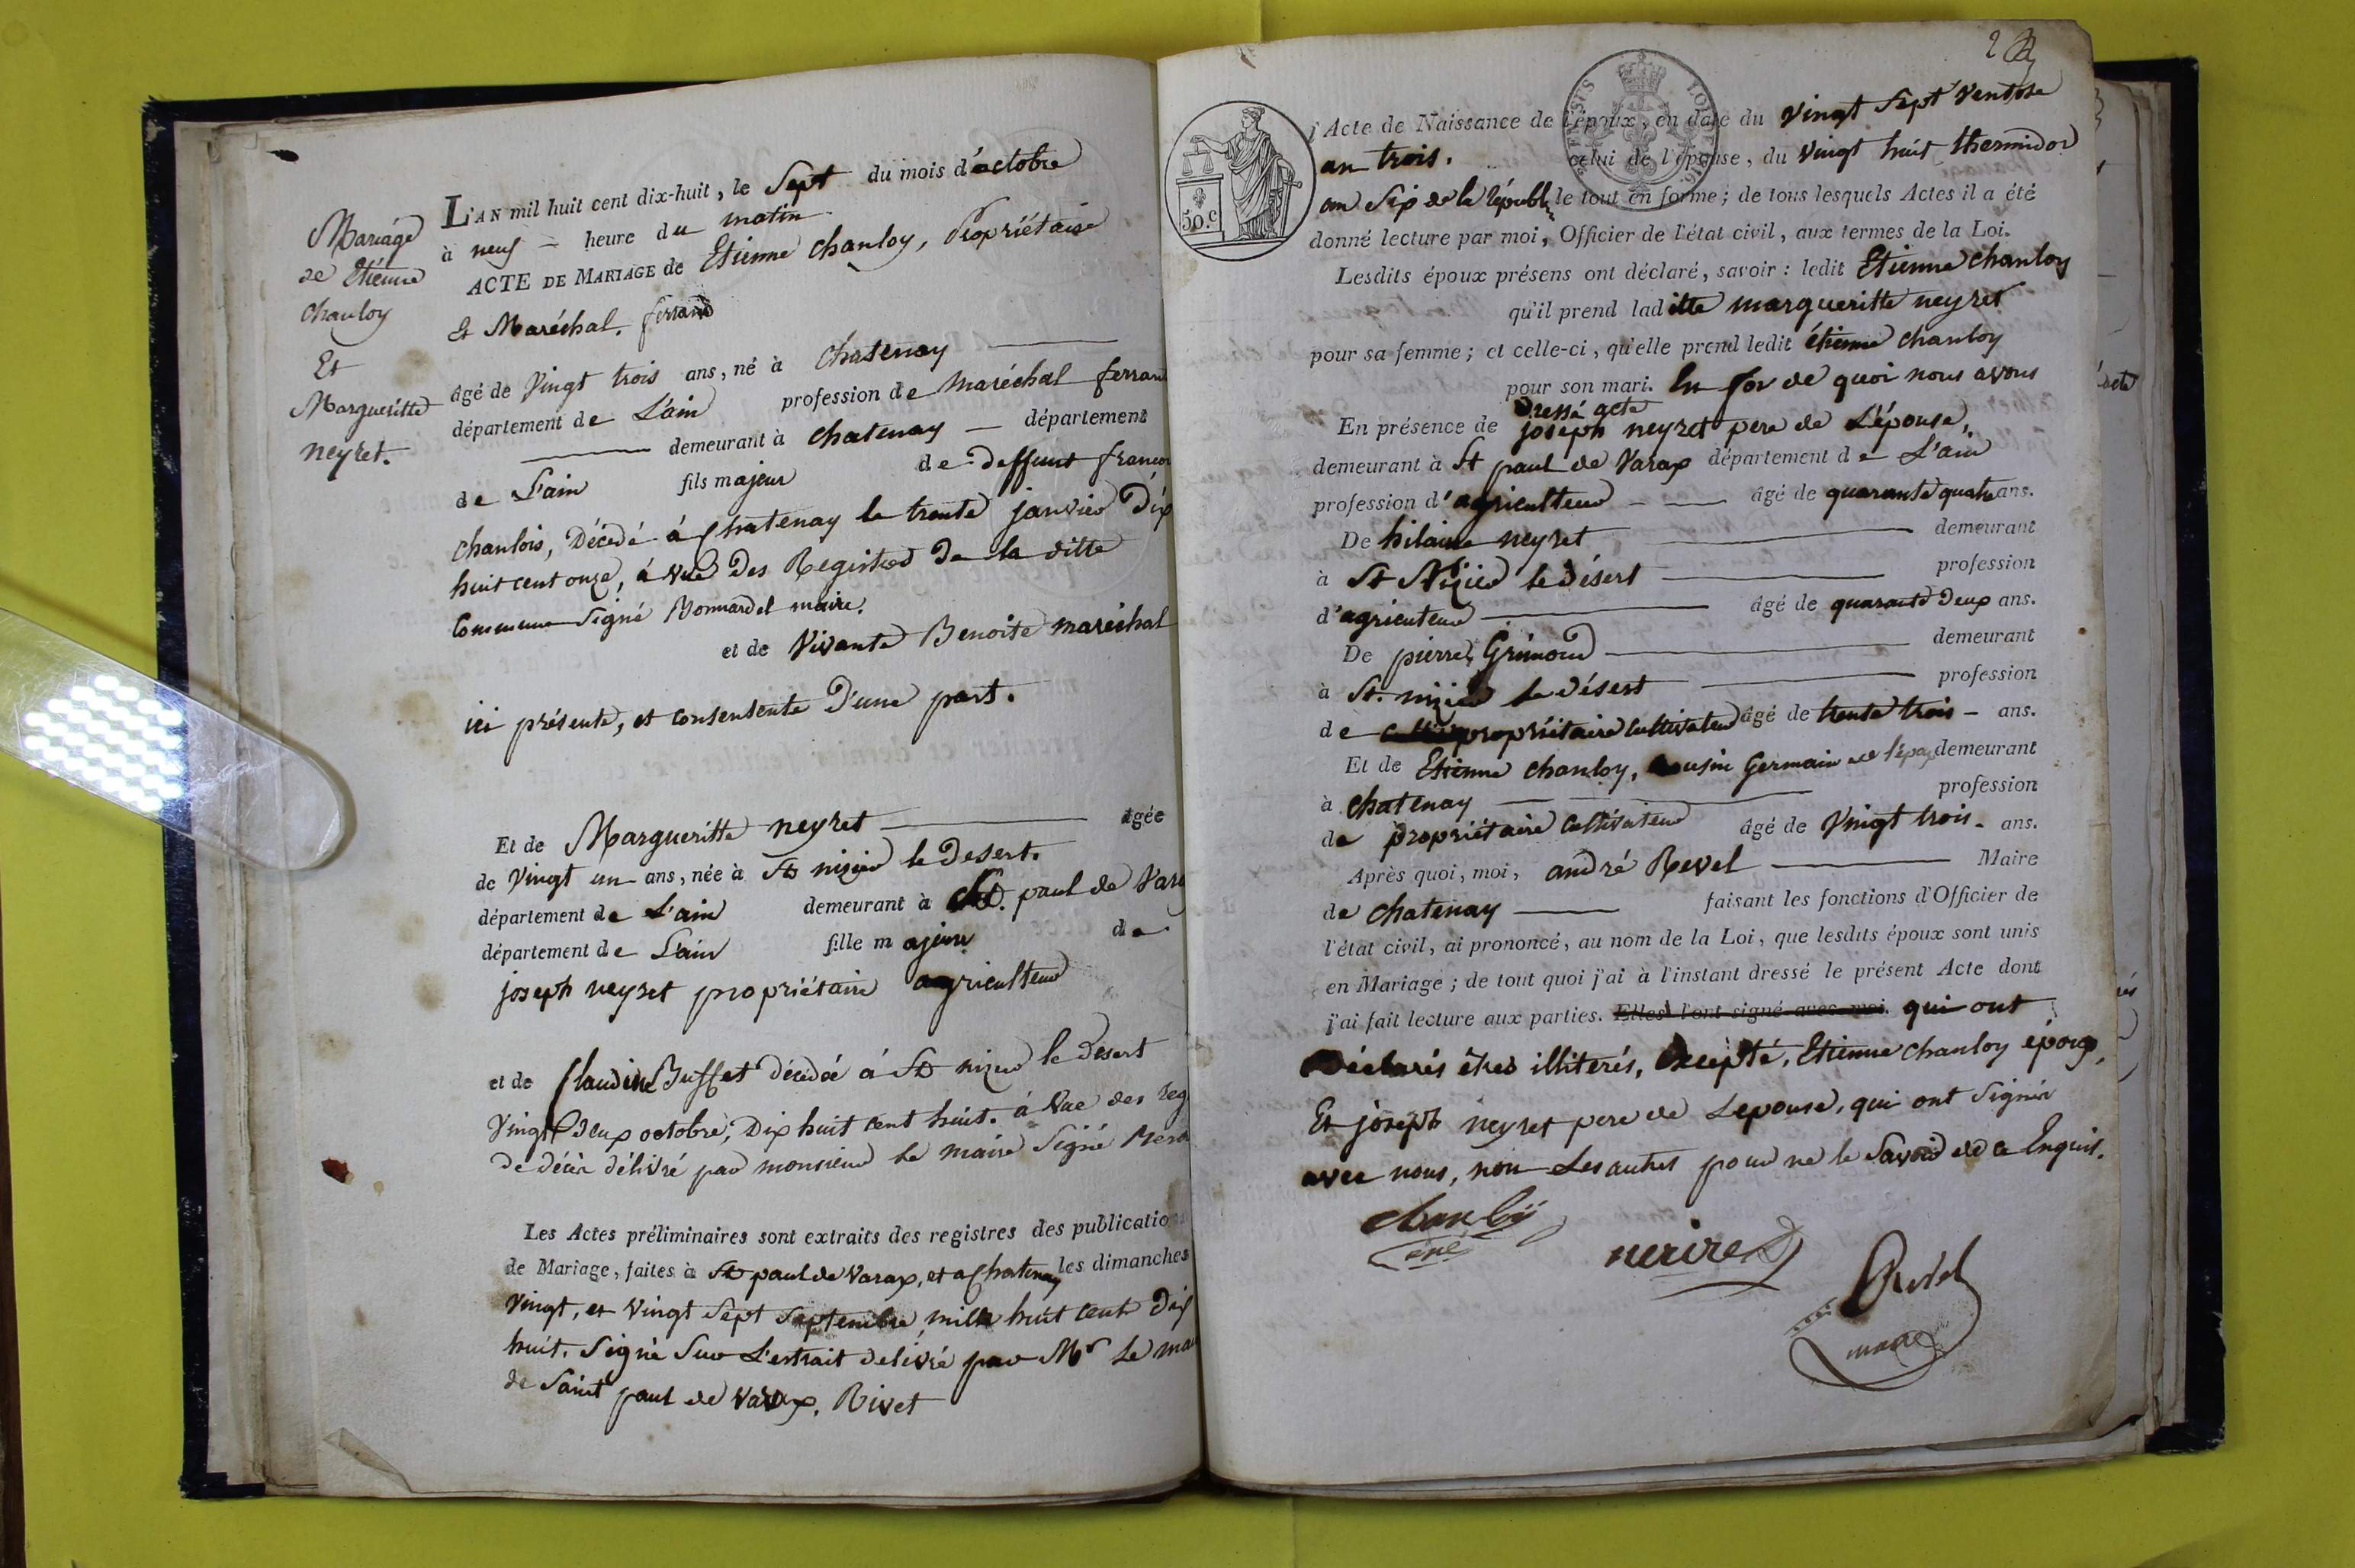 Mariage
de Etiénne
chanloy
Et
Margueritte
neyret.
L'AN mil huit cent dix-huit, le Sept du mois d'octobre
à neuf — heure du matin
ACTE DE MARIAGE de Etienne chanloy, Propriétaire
Et Maréchal. ferrand
âgé de Vingt trois ans, né à chatenay
département de L'ain profession de Maréchal ferran
demeurant à chatenay — département
de L'ain fils majeur de deffunt francoi
chanlois, Décédé à chatenay le trente janvier Dix
huit cent onze, à vue des Registres de la ditte
Commune Signé Monnardel maire.
et de Vivante Benoite maréchal
ici présente, et consentente D'une part.
Et de Margueritte neyret âgée
de Vingt un ans, née à St nizier le Desert.
département de L'ain demeurant à St. paul de Vara
département de L'ain fille majeure de
joseph neyret propriétaire agriculteur
et de Claudine Buffet décédée à St nizier le Desert
Vingt Deux octobre, Dix huit cent huit. à vue des reg
de décès délivré par monsieur le maire Signé
Les Actes préliminaires sont extraits des registres des publication
de Mariage, faites à St paul de Varax, et a Chatenay les dimanches
Vingt, et Vingt Sept Septembre mille huit cent Dix
huit. Signé Sur L'extrait delivré par Mr le mai
de Saint paul de Varax. Rivet
2
l'Acte de Naissance de l'époux, en date du Vingt Sept Ventose
an trois. celui de l'épouse, du Vingt huit thermidor
an Six de la républ le tout en forme; de tous lesquels Actes il a été
donné lecture par moi, Officier de l'état civil, aux termes de la Loi.
50.c
Lesdits époux présens ont déclaré, savoir: ledit Etienne chanloy
qu'il prend laditte margueritte neyret
pour sa femme; et celle-ci, qu'elle prend ledit étienne chanloy
pour son mari. En foy de quoi nous avons
Dressé acte
En présence de joseph neyret pere de L'épouse,
demeurant à St paul de Varax département de L'ain
profession d'agriculteur âgé de quarante quatre ans.
De hilaire neyret demeurant
à St Nizier le désert profession
d'agriculteur âgé de quarante Deux ans.
De pierre Grimoud demeurant
à St. nizier le désert profession
de propriétaire Cultivateur âgé de trente trois — ans.
Et de Etienne chanloy, cousin Germain de l'époux demeurant
à chatenay profession
de propriétaire Cultivateur âgé de Vingt trois - ans.
Après quoi, moi, andré Revel Maire
de chatenay faisant les fonctions d'Officier de
l'état civil, ai prononcé, au nom de la Loi, que lesdits époux sont unis
en Mariage; de tout quoi j'ai à l'instant dressé le présent Acte dont
j'ai fait lecture aux parties. Elles l'ont signé avec moi. qui ont
Déclarés êtres illiterés, Excepté, Etienne chanloy époux,
Et joseph neyret pere de Lepouse, qui ont Signér
avec nous, non Les autres pour ne le Savoir de ce Enquis.
chanloy
Revel
maire